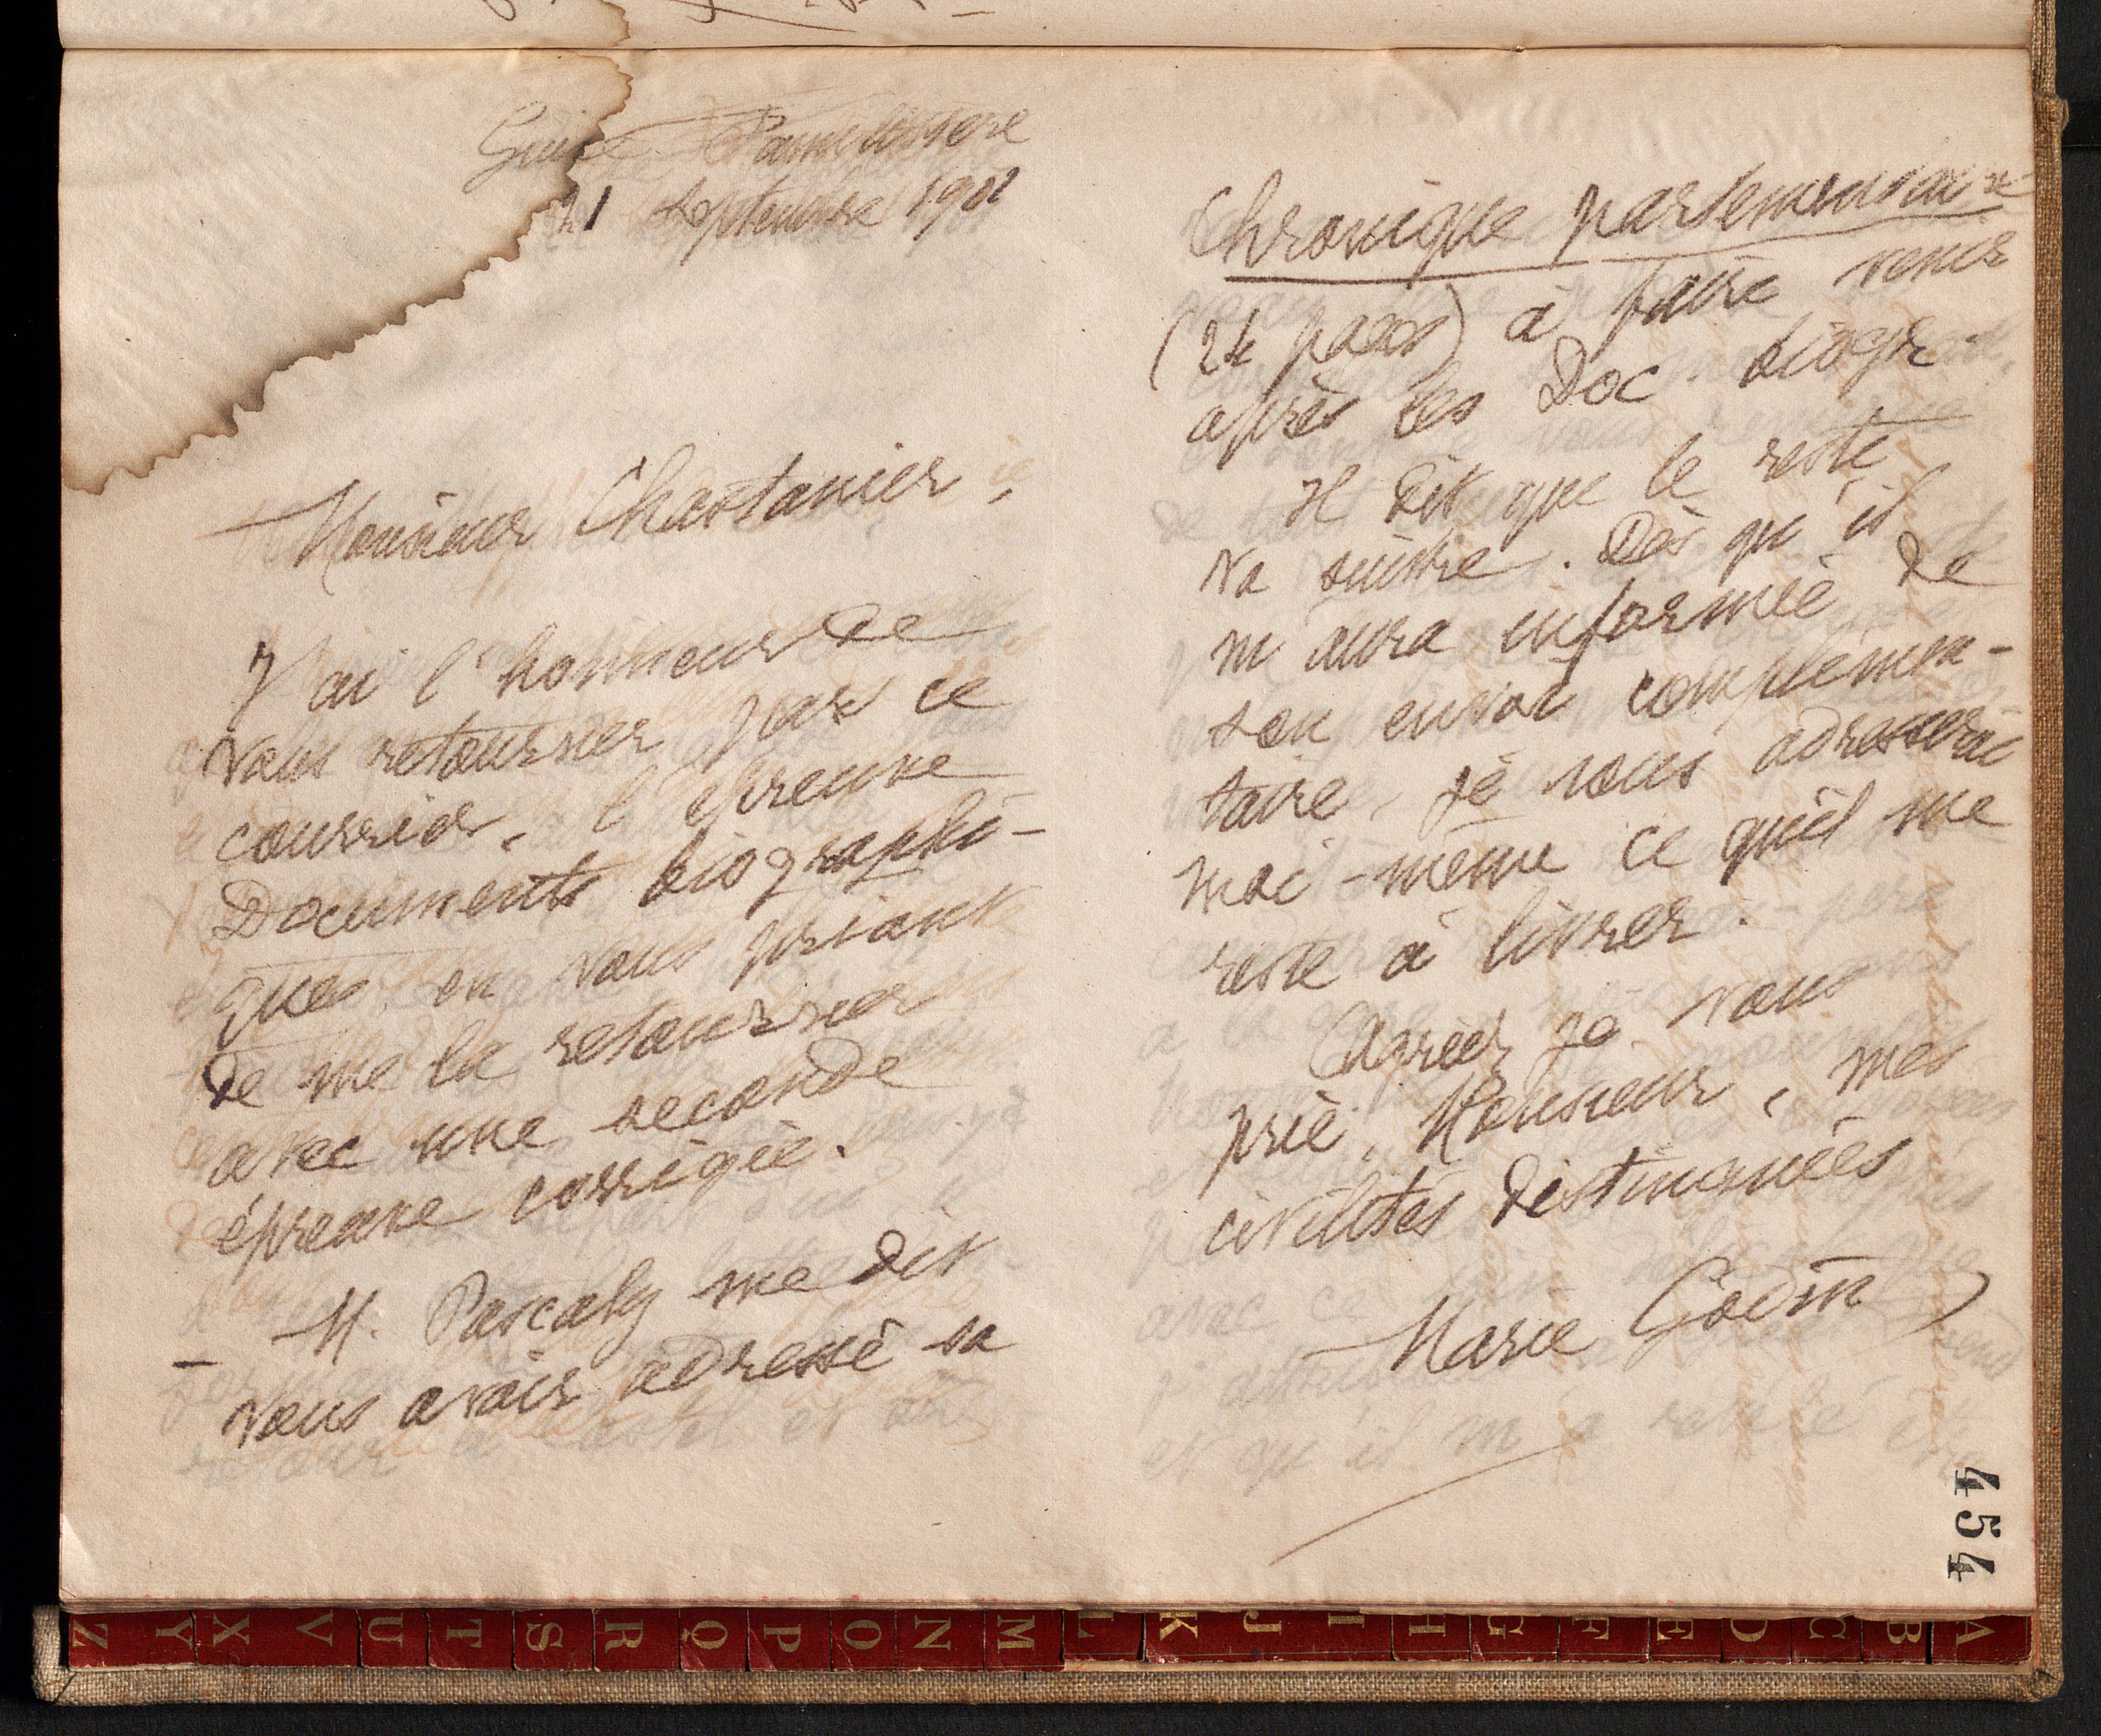 Guise Familistère
21 Septembre 1901
Monsieur Chastanier,
J'ai l'honneur de
vous retourner par ce
courrier, l'épreuve
Documents biographi-
ques en vous priant
de me la retourner
avec une seconde
épreuve corrigée.
M. Pascaly me dit
vous avoir adressé sa
Chronique parlementaire
(24 pages) à faire venir
après les Doc. biogr.
Il dit que le reste
va suivre. Dès qu'il
m'aura informée de
son envoi complémen-
taire, je vous adresserai
moi-même ce qu'il me
reste à livrer.
Agréez je vous
prie, Monsieur, mes
civilités distinguées
Marie Godin
454
Z Y X V U T S R Q P O N M L K J I H G F E D C B A